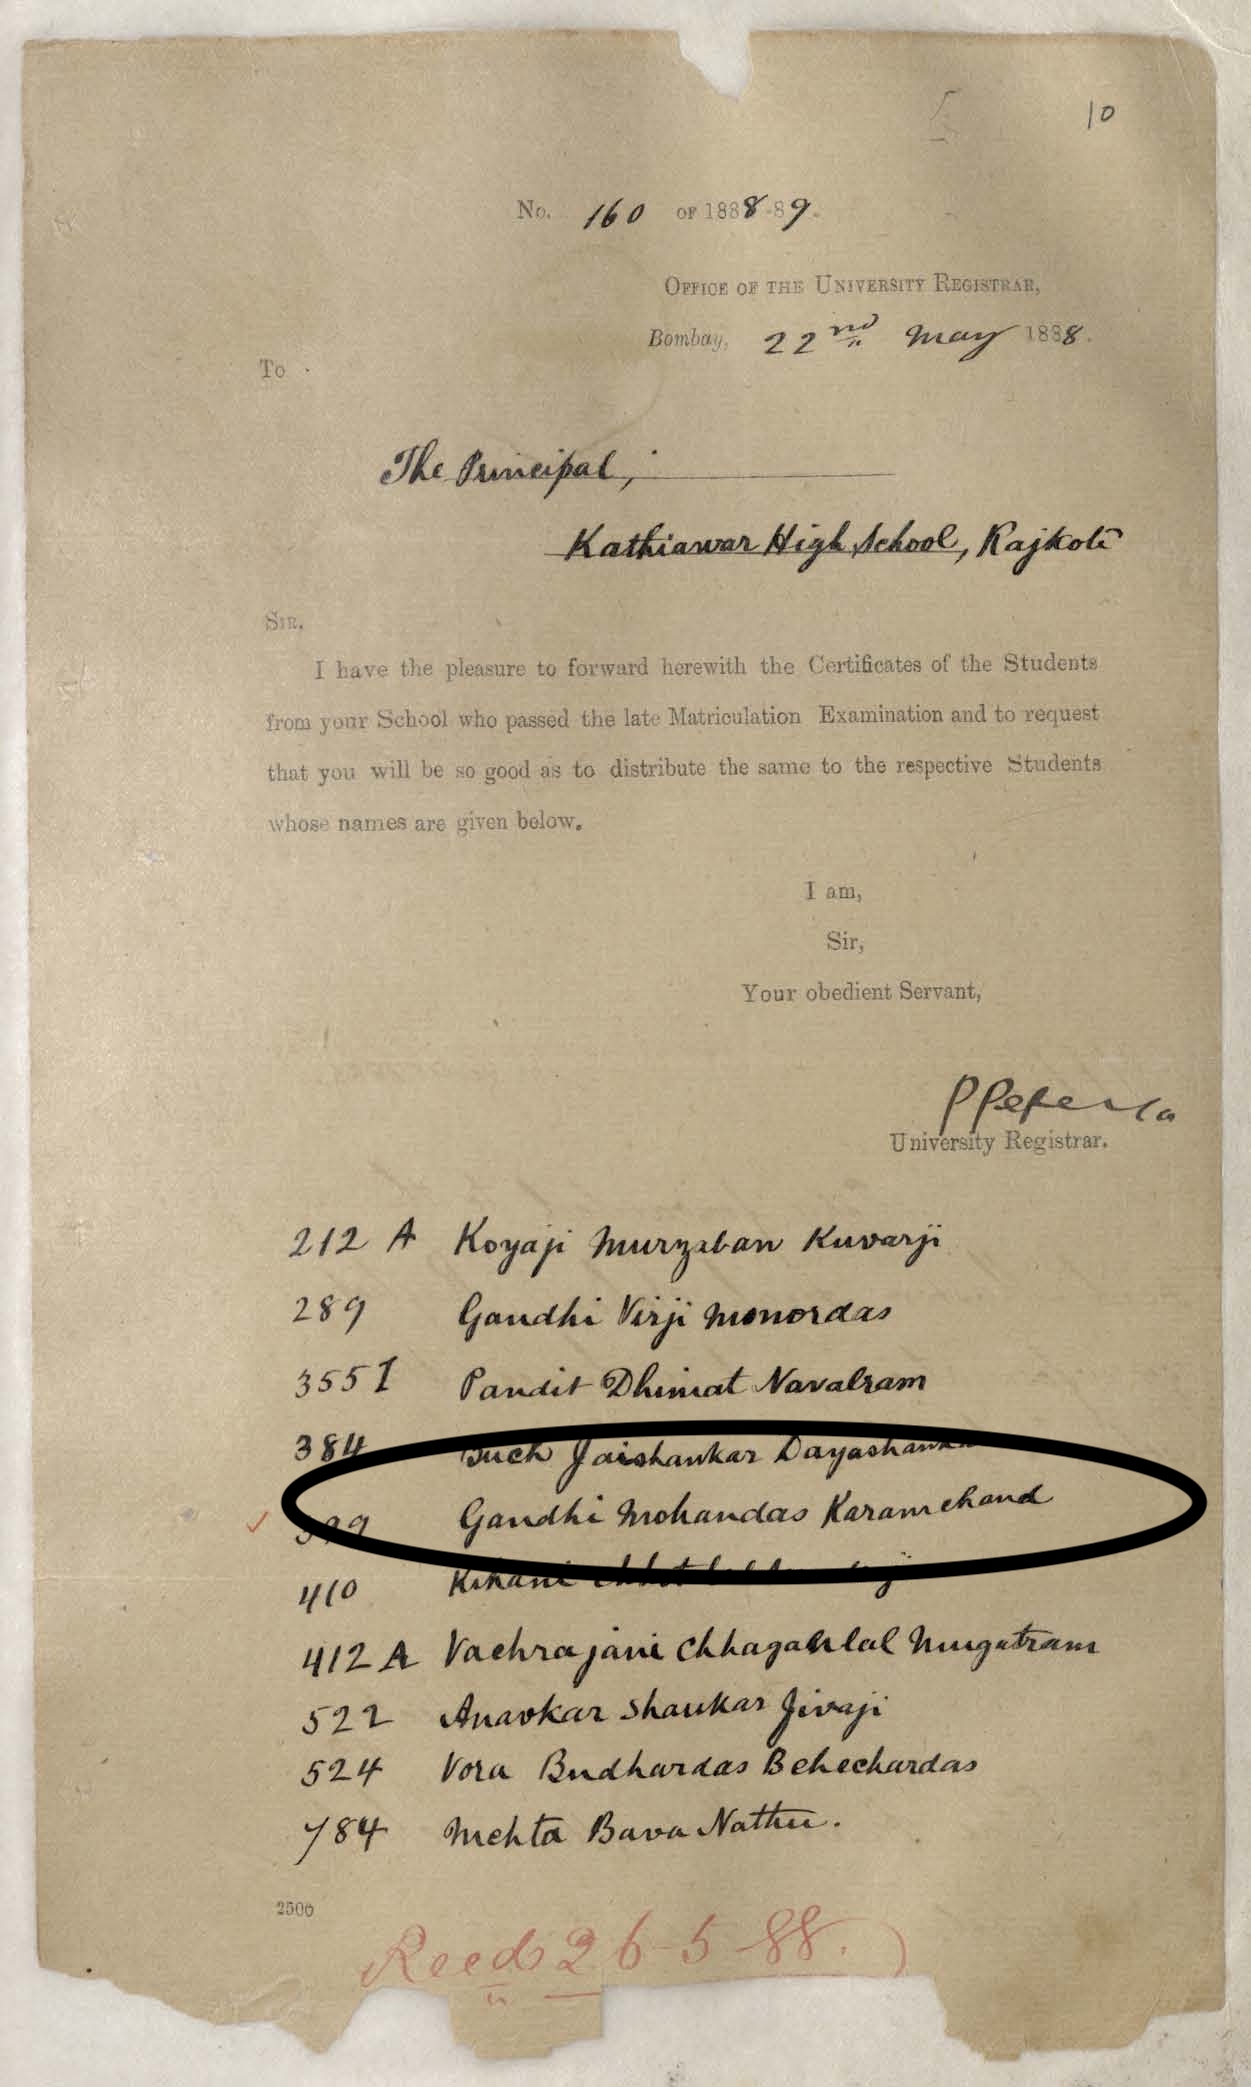 10
No. 160 OF 1888-89.
OFFICE OF THE UNIVERSITY REGISTRAR,
Bombay, 22nd May 1888.
To
The Principal,
Kathiawar High School, Rajkot
SIR,
I have the pleasure to forward herewith the Certificates of the Students
from your School who passed the late Matriculation Examination and to request
that you will be so good as to distribute the same to the respective Students
whose names are given below.
I am,
Sir,
Your obedient Servant,
University Registrar.
212 A Koyaji Murzaban Kuvarji
289 Gandhi Virji Monordas
355 Pandit Dhimat Navalram
384 Buch Jaishankar Dayashankar
Gandhi Mohandas Karamchand
410
412 A Vachrajani Chhaganlal Mugatram
522 Anavkar Shankar Jivaji
524 Vora Budhardas Behechardas
784 Mehta Bava Nathu.
2500
Recd 26-5-88.